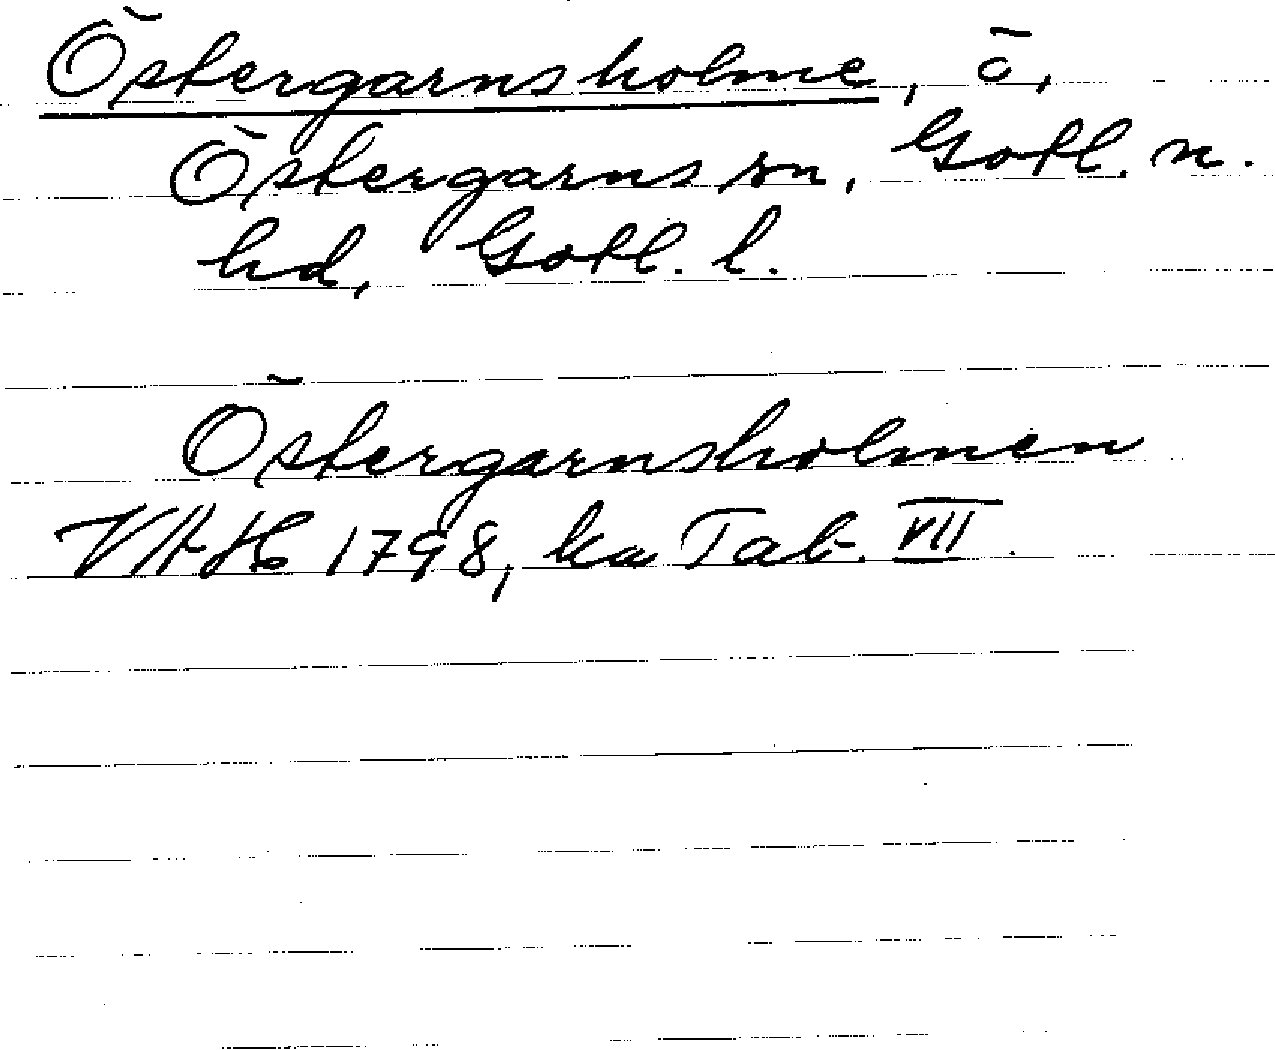 Östergarnsholme, ö,
Östergarns sn, Gotl. n.
hd, Gotl. l.
Östergarnsholmen
VAH 1798, ka Tab. VII.